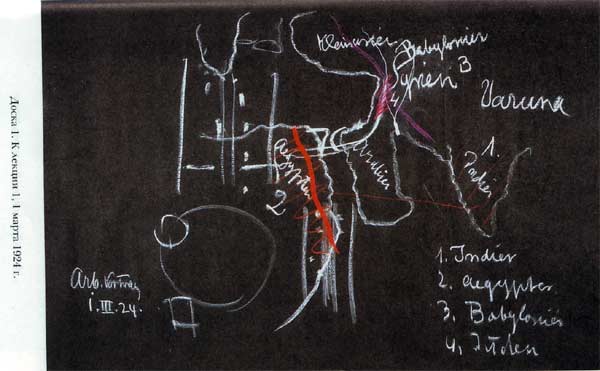 Доска 1. К лекции 1, 1 марта 1924 г.
Kleinasien
Babylonier
Syrien 3
4
Varuna
1.
Indien
Aegypten
2
Arabien
1. Indier
2. Aegypter
3. Babylonier
4, Juden
Arb. Vortrag
1. III. 24.